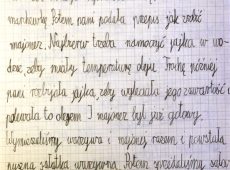 marchewkę. Potem pani podała przepis jak zrobić
majonez. Najpierw trzeba namoczyć jajka w wo-
dzie, żeby miały temperaturę oleju. Trochę później
pani rozbiła jajka, żeby wyleciała jego zawartość i
polewała to olejem i majonez był już gotowy.
Wymieszaliśmy warzywa i majonez razem i powstała
pyszna sałatka warzywna. Potem